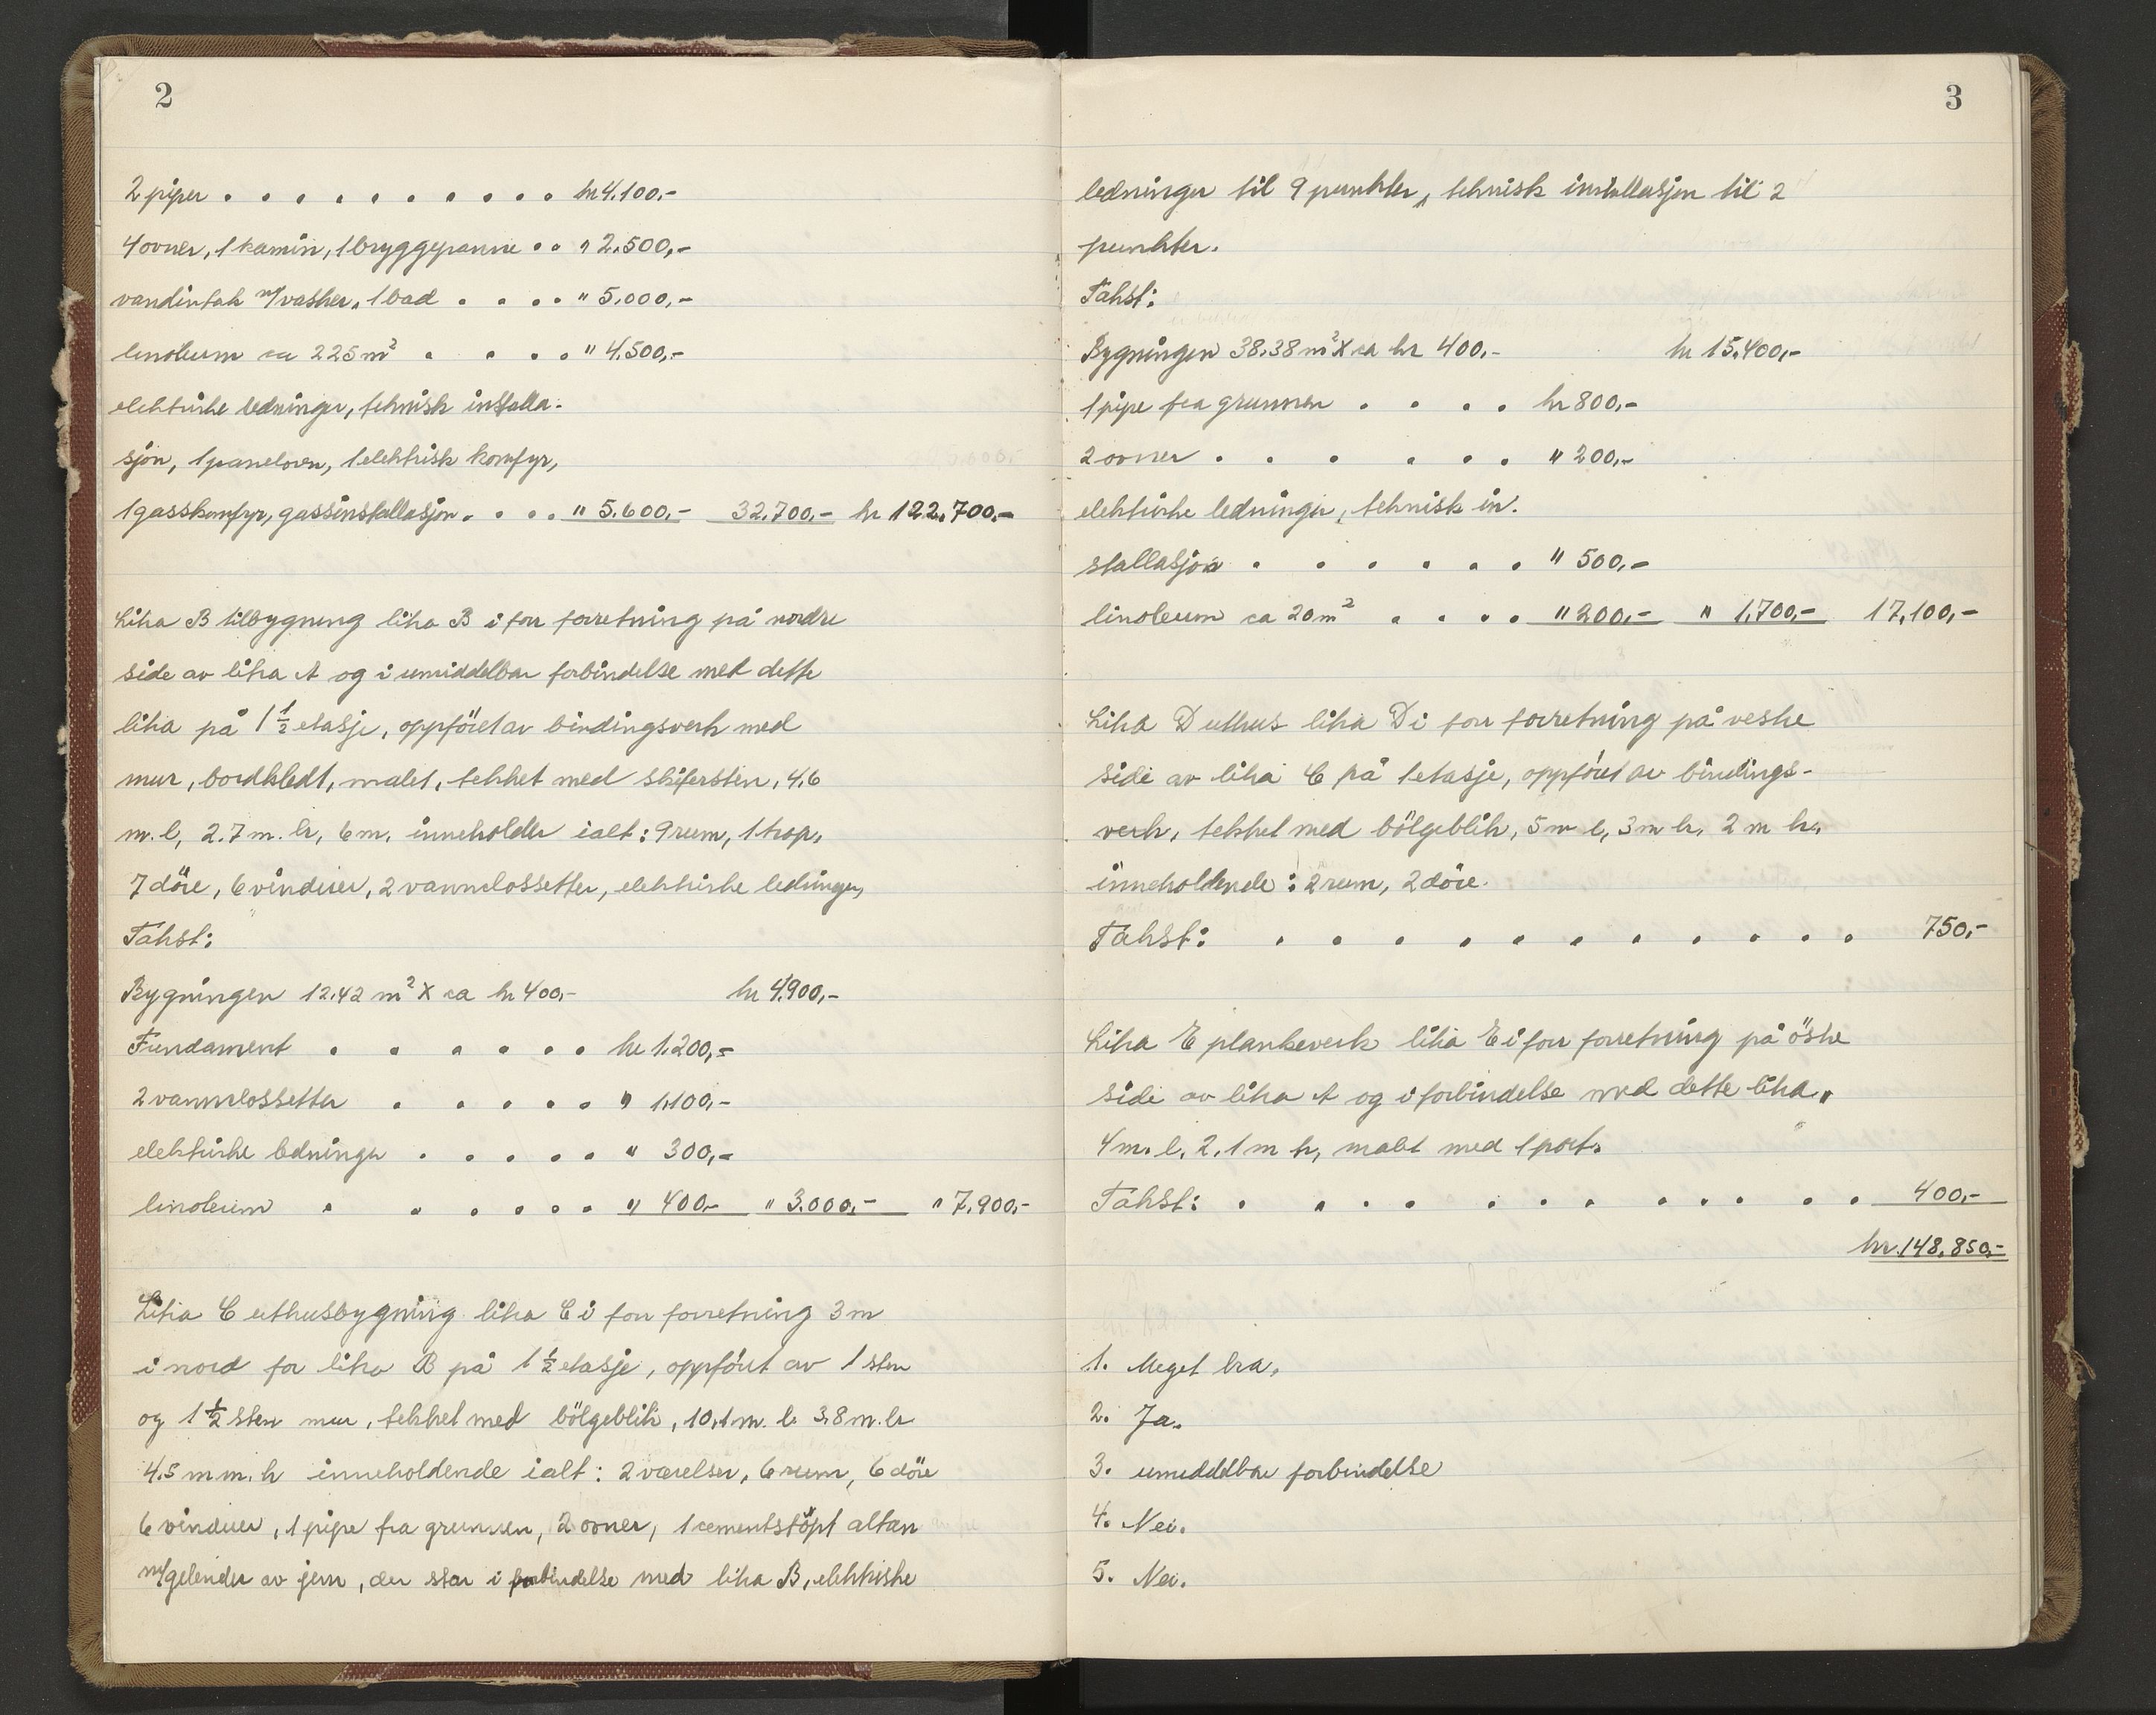 2
2 piper . . . . . . . . . . kr 4.100,-
4 ovner, 1 kamin, 1 bryggepanne . . " 2.500,-
vandintak m/vasker, 1 bad . . . . " 5.000,-
linoleum ca 225 m² . . . . " 4.500,-
elektriske ledninger, teknisk installa-
sjon, 1 panelovn, 1 elektrisk komfyr,
1 gasskomfyr, gassinstallasjon . . . . " 5.600,- 32.700,- kr 122.700,-
Litra B tilbygning litra B i forr forretning på nordre
side av litra A og i umiddelbar forbindelse med dette
litra på 1 1/2 etasje, oppföret av bindingsverk med
mur, bordkledt, malet, tekket med skifersten, 4,6
m. l, 2.7 m. br, 6 m, inneholder ialt: 9 rum, 1 trap,
7 döre, 6 vinduer, 2 vannclossetter, elektriske ledninger,
Takst:
Bygningen 12.42 m² X ca kr 400,- kr 4.900,-
Fundament . . . . . . kr 1.200,-
2 vannclossetter . . . . . " 1.100,-
elektriske ledninger . . . . . " 300,-
linoleum . . . . . . " 400,- " 3.000,- " 7.900,-
Litra C uthusbygning litra C i forr forretning 3 m
i nord for litra B på 1 1/2 etasje, oppföret av 1 sten
og 1 1/2 sten mur, tekket med bölgeblik, 10,1 m. l. 3,8 m. br
4.5 m m. h inneholdende ialt: 2 værelser, 6 rum, 6 döre
6 vinduer, 1 pipe fra grunnen, 2 ovner, 1 cementstöpt altan
m/gelender av jern, der står i forbindelse med litra B, elektriske
3
ledninger til 9 punkter, teknisk installasjon til 2
punkter.
Takst:
Bygningen 38.38 m² X ca kr 400,- kr 15.400,-
1 pipe fra grunnen . . . . kr 800,-
2 ovner . . . . . . " 200,-
elektriske ledninger, teknisk in-
stallasjon . . . . . . " 500,-
linoleum ca 20 m² . . . . " 200,- " 1.700,- 17,100,-
Litra D uthus litra D i forr forretning på vestre
side av litra C på 1 etasje, oppföret av bindings-
verk, tekket med bölgeblik, 5 m l, 3 m br, 2 m h,
inneholdende: 2 rum, 2 döre.
Takst: . . . . . . . . . . . 750,-
Litra E plankeverk litra E i forr forretning på östre
side av litra A og i forbindelse med dette litra,
4 m. l. 2,1 m h, malet med 1 port.
Takst: . . . . . . . . . . . . 400,-
kr. 148.850,-
1. Meget bra,
2. Ja.
3. umiddelbar forbindelse
4. Nei.
5. Nei.